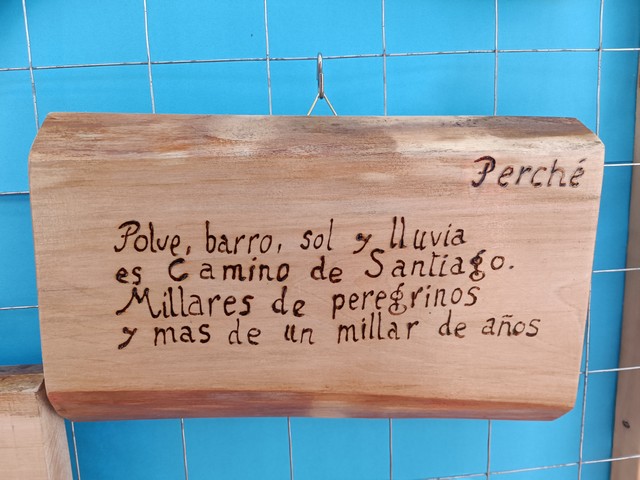 Perché
Polve, barro, sol y lluvia
es Camino de Santiago.
Millares de peregrinos
y mas de un millar de años